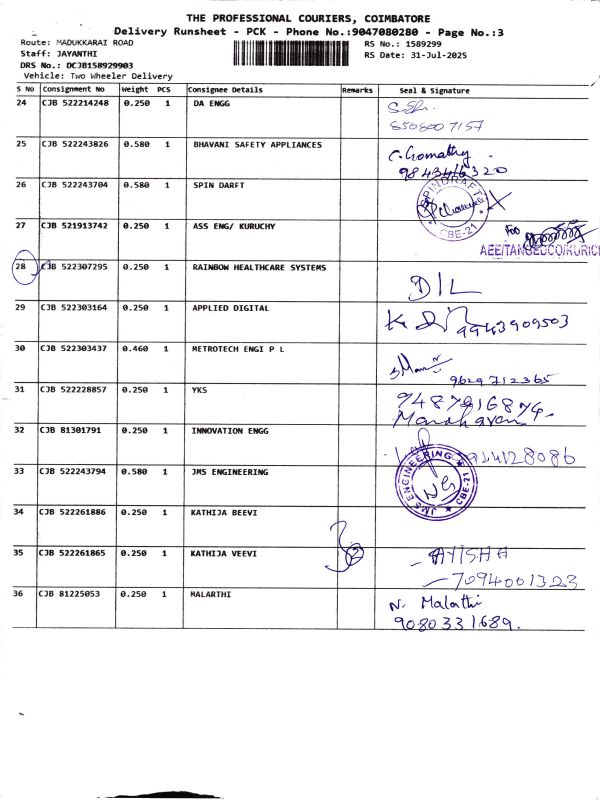 THE PROFESSIONAL COURIERS, COIMBATORE
Delivery Runsheet - PCK - Phone No.:9047080280 - Page No.:3
Route: MADUKKARAI ROAD
Staff: JAYANTHI
DRS No.: DCJB158929903
Vehicle: Two Wheeler Delivery
RS No.: 1589299
RS Date: 31-Jul-2025
S No Consignment No Weight PCS Consignee Details Remarks Seal & Signature
24 CJB 522214248 0.250 1 DA ENGG
25 CJB 522243826 0.580 1 BHAVANI SAFETY APPLIANCES
C. Gomathy
26 CJB 522243704 0.580 1 SPIN DARFT
SPINDRAFT
CBE-21
27 CJB 521913742 0.250 1 ASS ENG/ KURUCHY
For
AEE/TANGEDCO/KURIC
28 CJB 522307295 0.250 1 RAINBOW HEALTHCARE SYSTEMS
D/L
29 CJB 522303164 0.250 1 APPLIED DIGITAL
9943909503
30 CJB 522303437 0.460 1 METROTECH ENGI P L
9629712365
31 CJB 522228857 0.250 1 YKS
32 CJB 81301791 0.250 1 INNOVATION ENGG
33 CJB 522243794 0.580 1 JMS ENGINEERING
JMS ENGINEERING
CBE-21
34 CJB 522261886 0.250 1 KATHIJA BEEVI
35 CJB 522261865 0.250 1 KATHIJA VEEVI
2
- AYISHA
- 7094001323
36 CJB 81225053 0.250 1 MALARTHI
N. Malathi
9080331689.